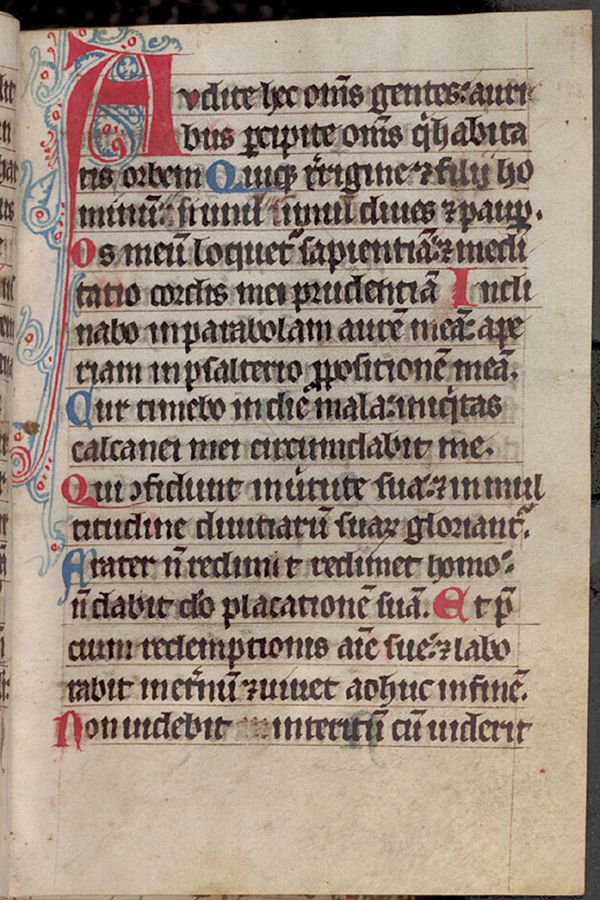 Audite hec om̄s gentes: auri
bus ꝑcipite om̄s q̇ habita
tis orbem Quiqꝫ t̃rigine ⁊ filii ho
minū: simul simul diues ⁊ paupꝑ.
Os meū loquet᷑ sapientiā: ⁊ medi
tatio cordis mei prudentiā Incli
nabo in parabolam aurē meā: ape
riam in psalterio ꝓpositionē meā.
Cur timebo in die mala: iniq̇tas
calcanei mei circumdabit me.
Qui ꝯfidunt in ũtute sua: ⁊ in mul
titudine diuitiarū suaꝝ gloriant᷑.
Frater n̄ redimit redimet homo:
n̄ dabit deo placationē suā. Et p̄
cium redemptionis aīe sue: ⁊ labo
rabit in et̃nū ⁊ uiuet adhuc in finē.
Non uidebit interitū cū uiderit